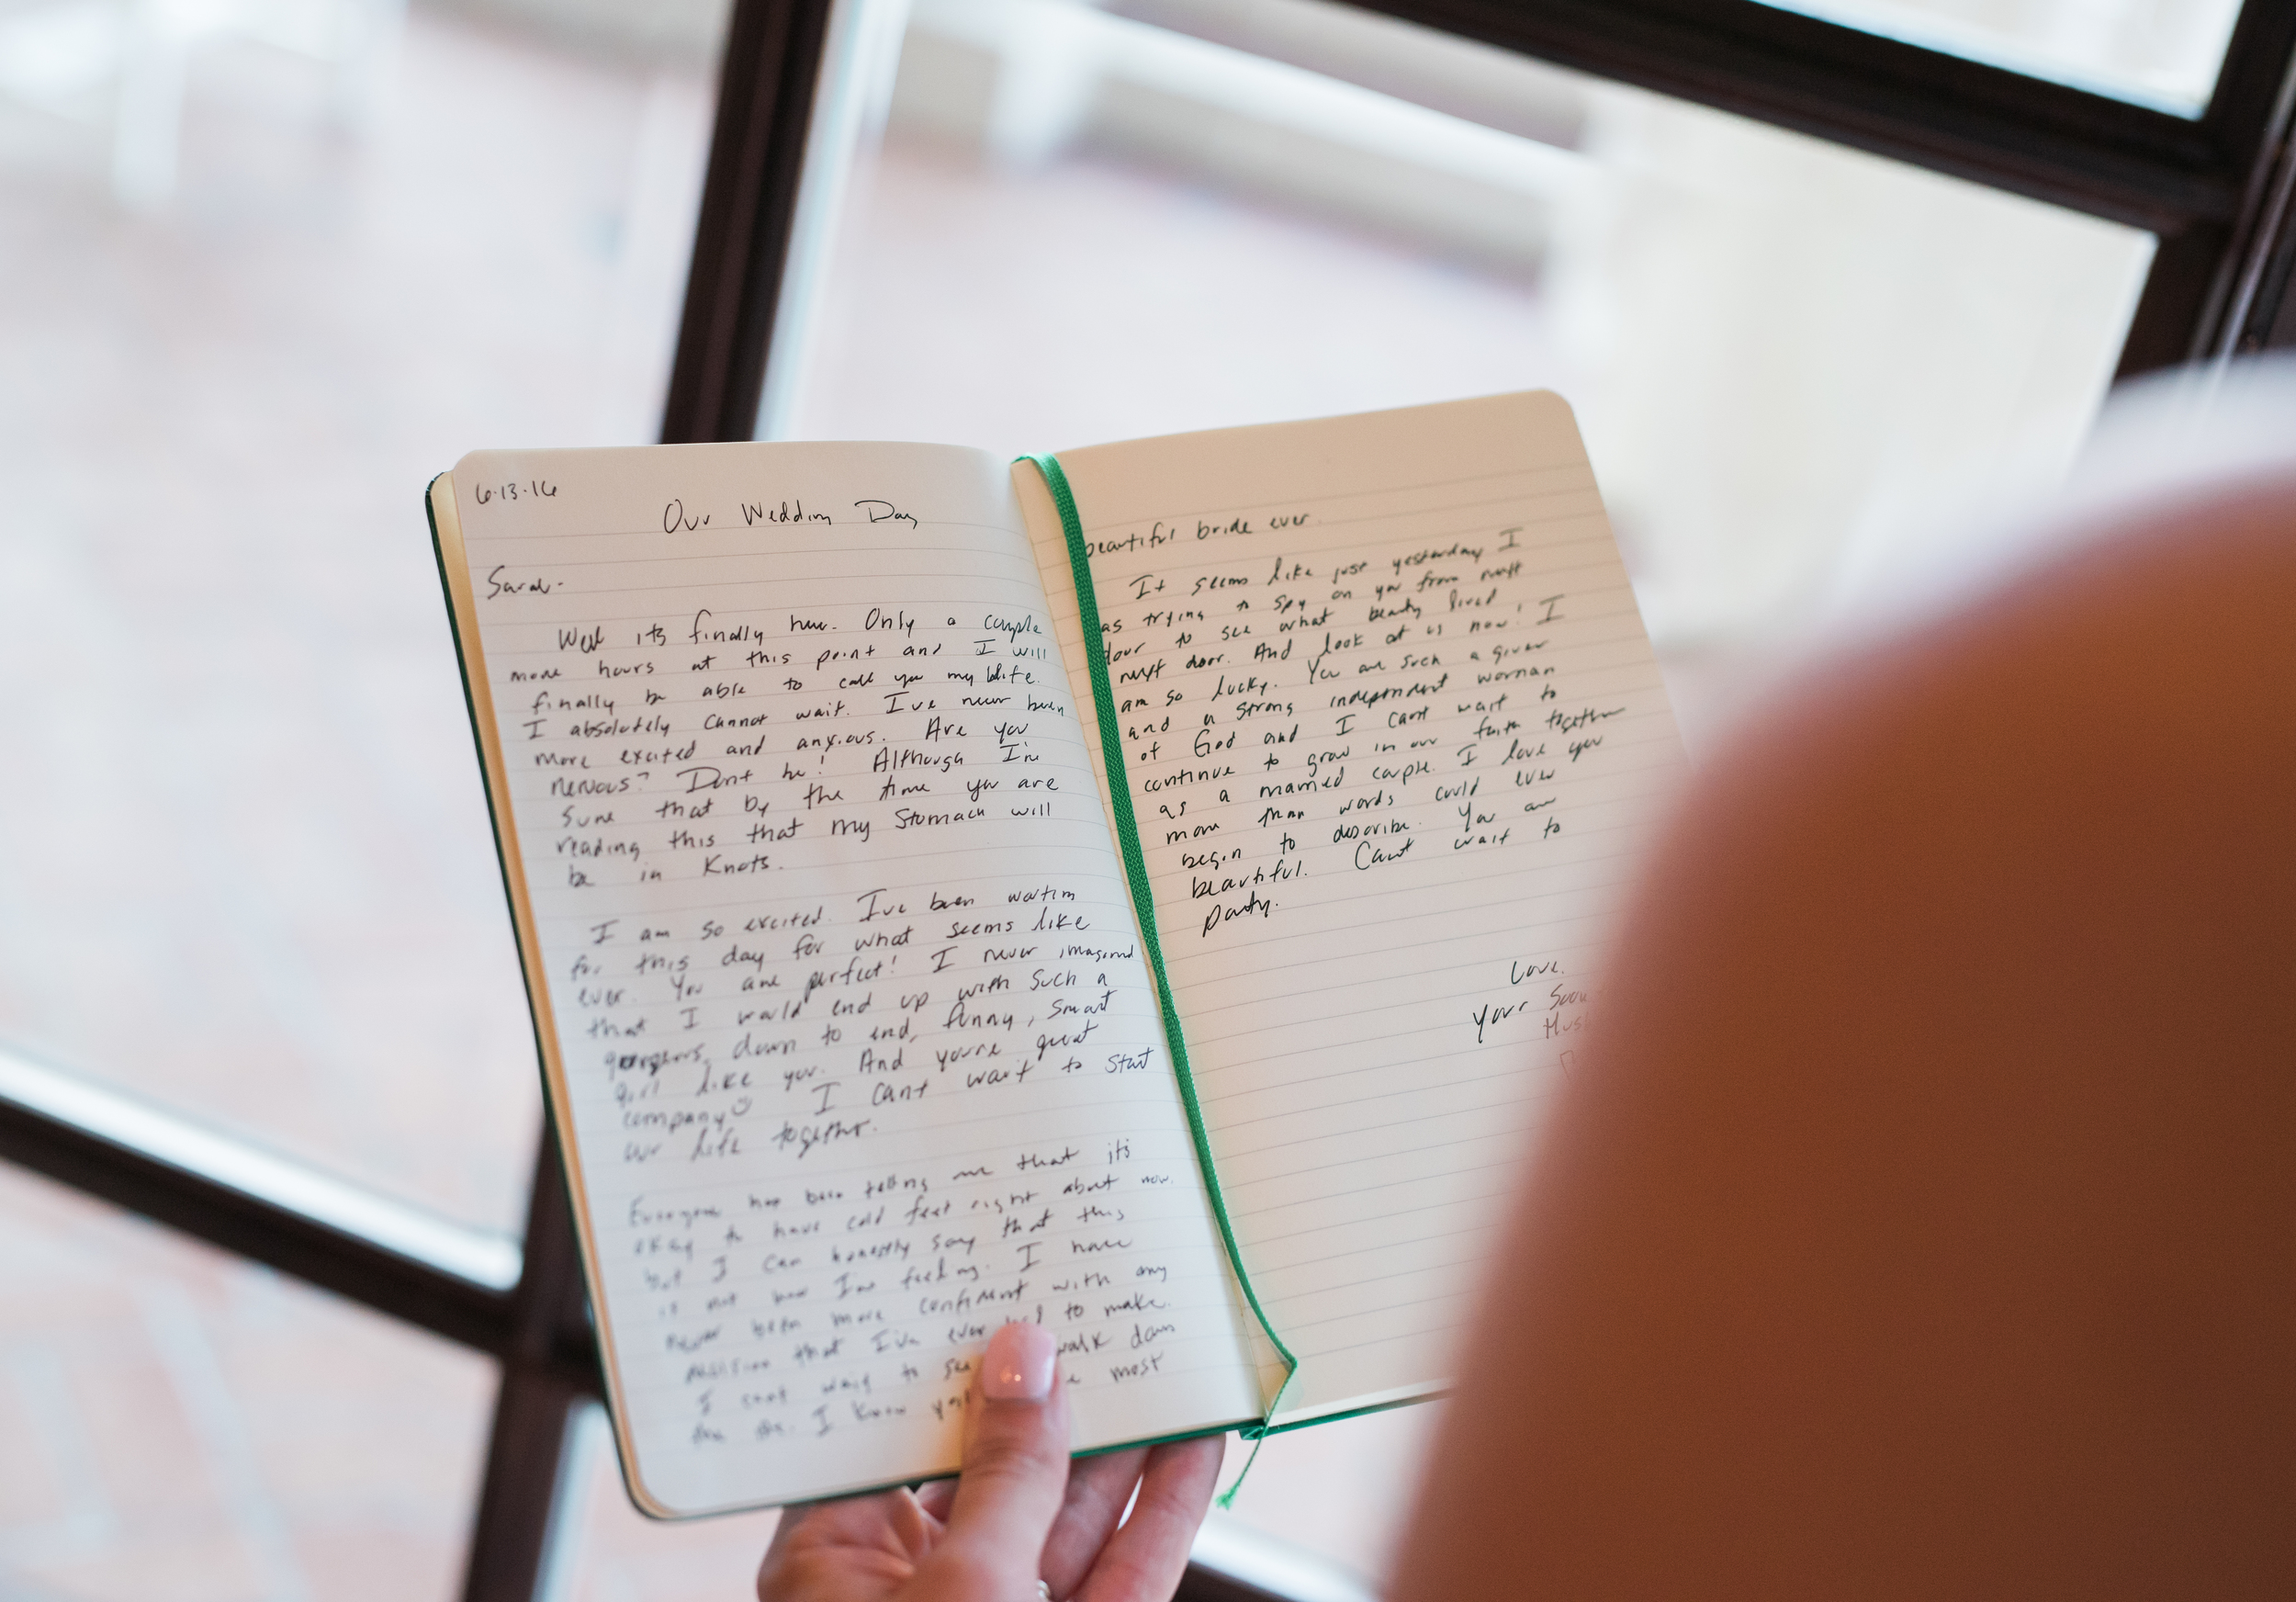 6.13.16
Our Wedding Day
Sarah-
Well its finally here. Only a couple
more hours at this point and I will
finally be able to call you my Wife.
I absolutely cannot wait. I've never been
more excited and anxious. Are you
nervous? Dont be! Although I'm
sure that by the time you are
reading this that my Stomach will
be in Knots.
I am so excited. I've been waiting
for this day for what seems like
ever. You are perfect! I never imagined
that I would end up with such a
gorgeous, down to end, funny, smart
girl like you. And youre great
company I cant wait to start
our life together.
Everyone has been telling me that its
okay to have cold feet right about now.
but I can honestly say that this
is not how Im feeling. I have
never been more confident with any
decision that I've ever had to make.
I cant wait to see walk down
the I know most
beautiful bride ever.
It seems like just yesterday I
as trying to spy on you from next
door to see what beauty lived
next door. And look at us now! I
am so lucky. You are such a giver
and a strong independent woman
of God and I cant wait to
continue to grow in our faith together
as a married couple. I love you
more than words could ever
begin to describe. You are
beautiful. Cant wait to
party.
Love,
Your